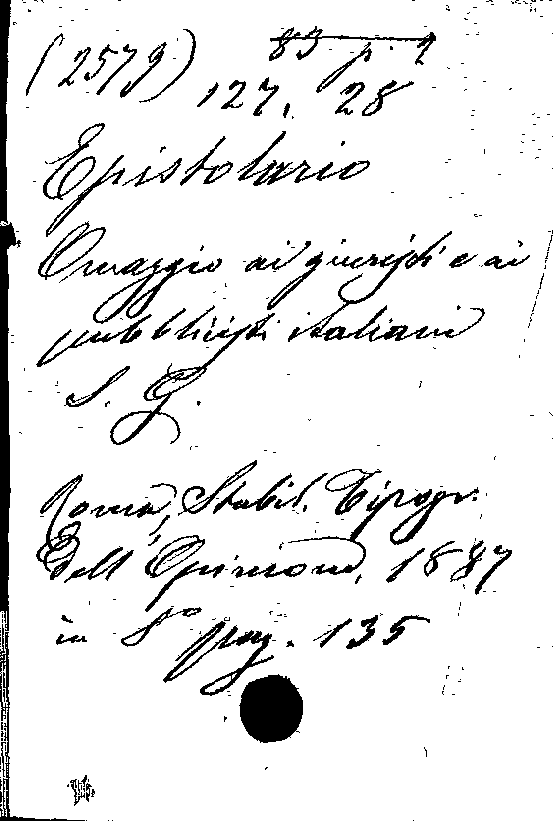 (2579) 83 p. 2
127, 28
Epistolario
Omaggio ai giuristi e ai
pubblicisti italiani
S. G.
Roma, Stabil. Tipogr.
dell'Opinione, 1887
in 8° pag. 135